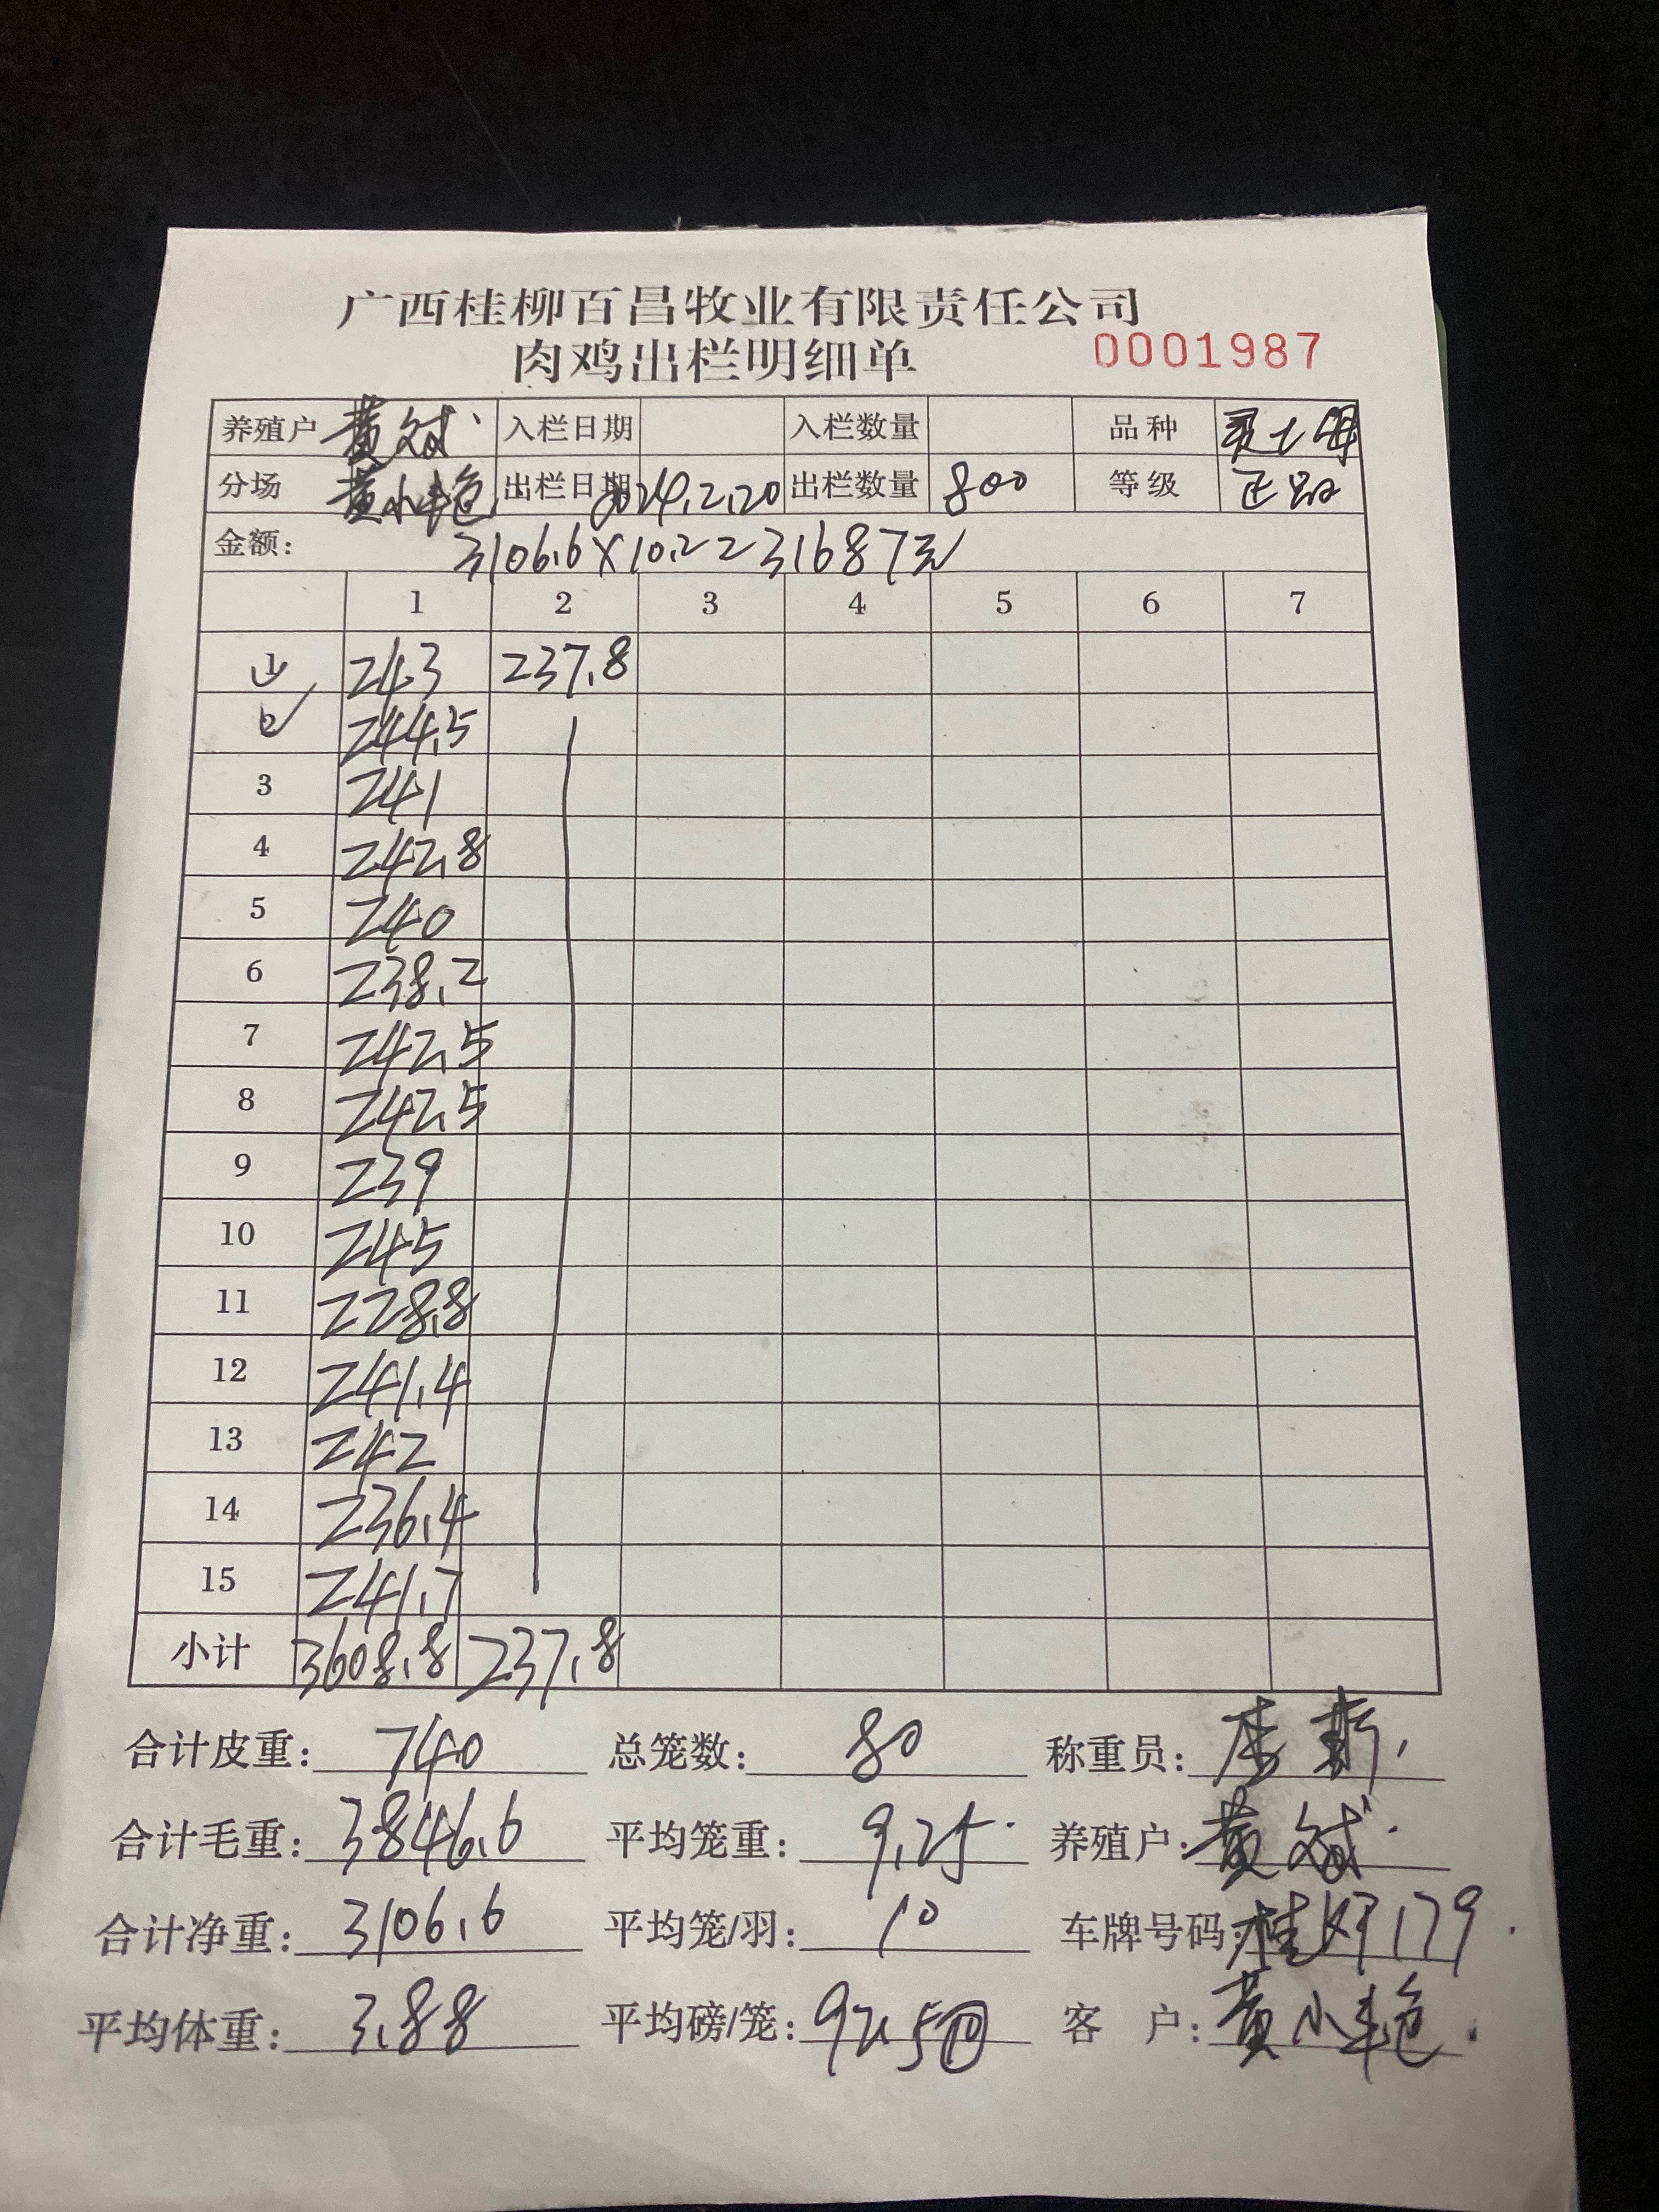 广西桂柳百昌牧业有限责任公司
肉鸡出栏明细单 0001987
养殖户 黄文斌 入栏日期 入栏数量 品种
分场 黄小艳 出栏日期 2024.2.20 出栏数量 800 等级 正品
金额: 3106.6×10.2=31687元
1 2 3 4 5 6 7
1 243 237.8
2 244.5
3 241
4 242.8
5 240
6 238.2
7 242.5
8 242.5
9 239
10 245
11 228.8
12 241.4
13 242
14 236.4
15 241.7
小计 3608.8 237.8
合计皮重: 740 总笼数: 80 称重员:
合计毛重: 3846.6 平均笼重: 9.25 养殖户: 黄文斌
合计净重: 3106.6 平均笼/羽: 10 车牌号码: 桂 179
平均体重: 3.88 平均磅/笼: 92.5 客 户: 黄小艳